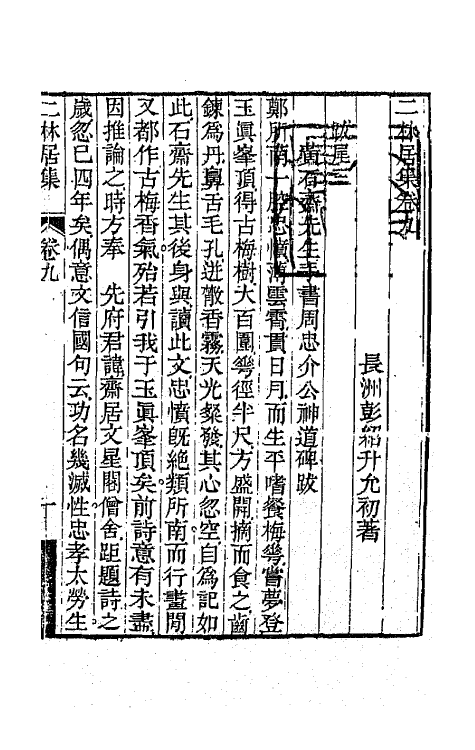 二林居集卷九
長洲彭紹升允初著
跋尾三
黃石齋先生手書周忠介公神道碑跋
鄭所南一腔忠憤薄雲霄貫日月而生平嗜餐梅㠾嘗夢登
玉眞峯頂得古梅樹大百圍㠾徑半尺方盛開摘而食之齒
鍊爲丹鼻舌毛孔迸散香霧天光粲發其心忽空自爲記如
此石齋先生其後身與讀此文忠憤旣絶類所南而行畫閒
又都作古梅香氣殆若引我于玉眞峯頂矣前詩意有未盡
因推論之時方奉　先府君諱齋居文星閣僧舍距題詩之
歲忽已四年矣偶憶文信國句云功名幾滅性忠孝太勞生
二林居集
卷九
一